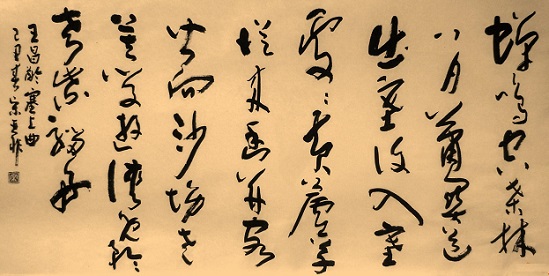 蝉鸣空桑林
八月萧关道
出塞复入塞
处々黄芦草
从来幽并客
皆向沙场老
莫学游侠儿矜
夸紫骝好
王昌龄塞上曲
丑春